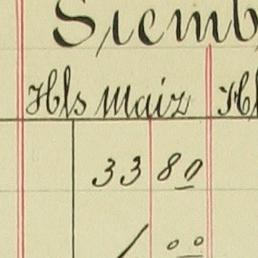 Siemb
Hls Maiz Hl
33 80
1 00